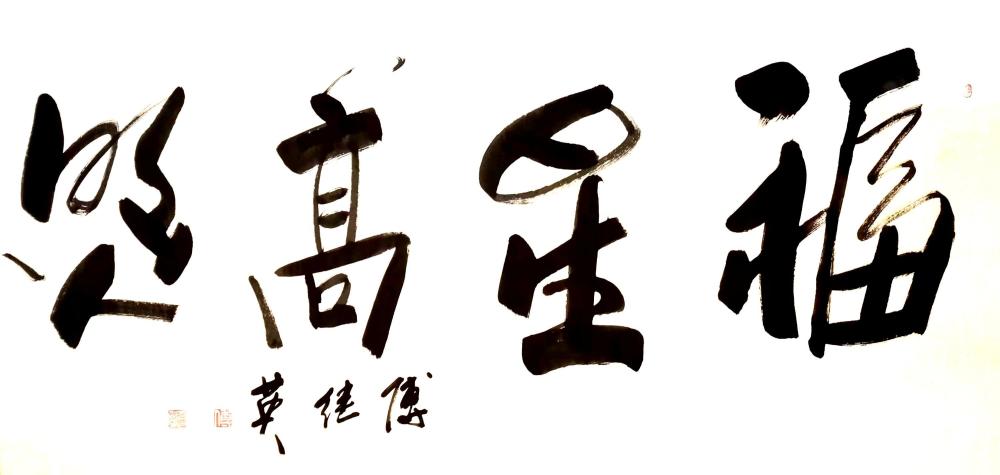 福星高照
傅继英